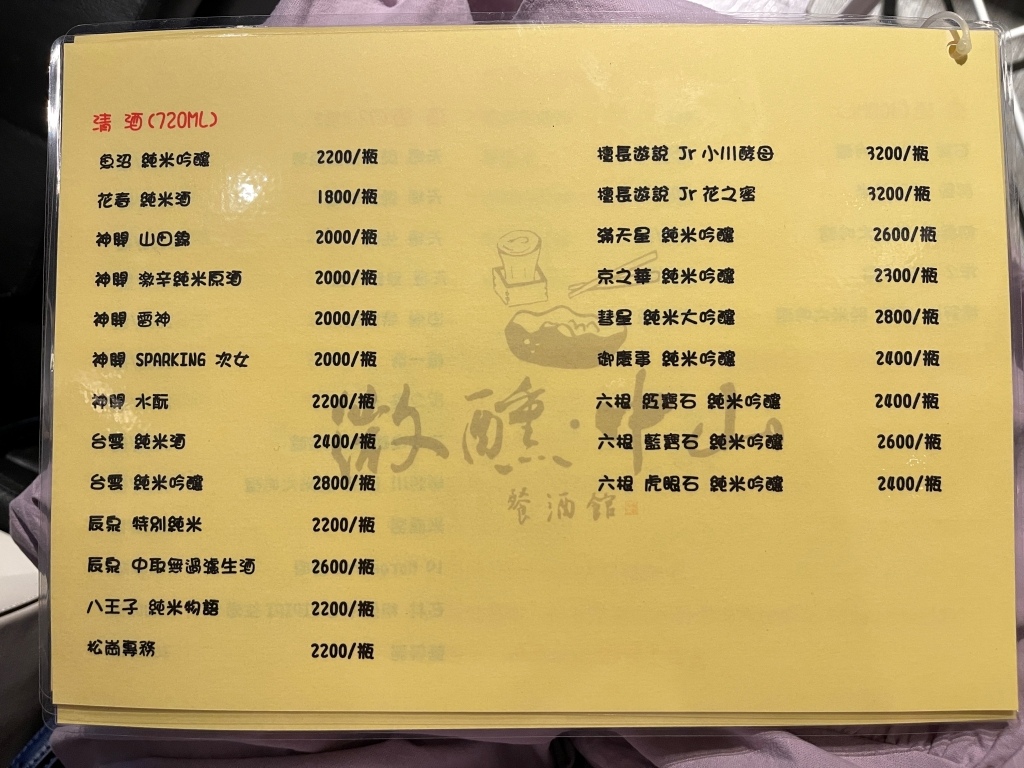 清 酒(720ML)
魚沼 純米吟釀 2200/瓶
花春 純米酒 1800/瓶
神開 山田錦 2000/瓶
神開 激辛純米原酒 2000/瓶
神開 雷神 2000/瓶
神開 SPARKING 次女 2000/瓶
神開 水酛 2200/瓶
台雲 純米酒 2400/瓶
台雲 純米吟釀 2800/瓶
辰泉 特別純米 2200/瓶
辰泉 中取無過濾生酒 2600/瓶
八王子 純米物語 2200/瓶
松崗專務 2200/瓶
檀長遊說 Jr 小川酵母 3200/瓶
檀長遊說 Jr 花之蜜 3200/瓶
滿天星 純米吟釀 2600/瓶
京之華 純米吟釀 2300/瓶
彗星 純米大吟釀 2800/瓶
御慶事 純米吟釀 2400/瓶
六根 紅寶石 純米吟釀 2400/瓶
六根 藍寶石 純米吟釀 2600/瓶
六根 虎眼石 純米吟釀 2400/瓶
微醺·中山
餐酒館